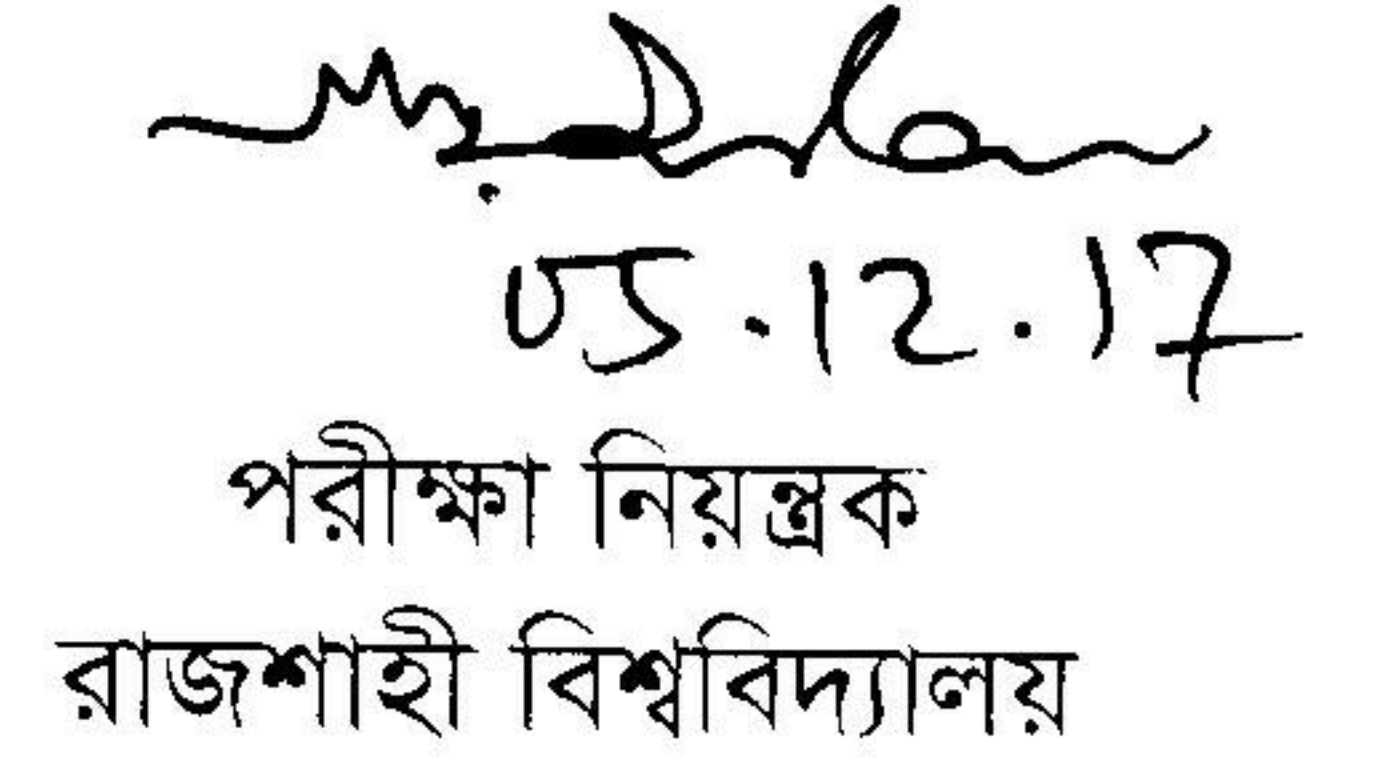 05.12.17
পরীক্ষা নিয়ন্ত্রক
রাজশাহী বিশ্ববিদ্যালয়